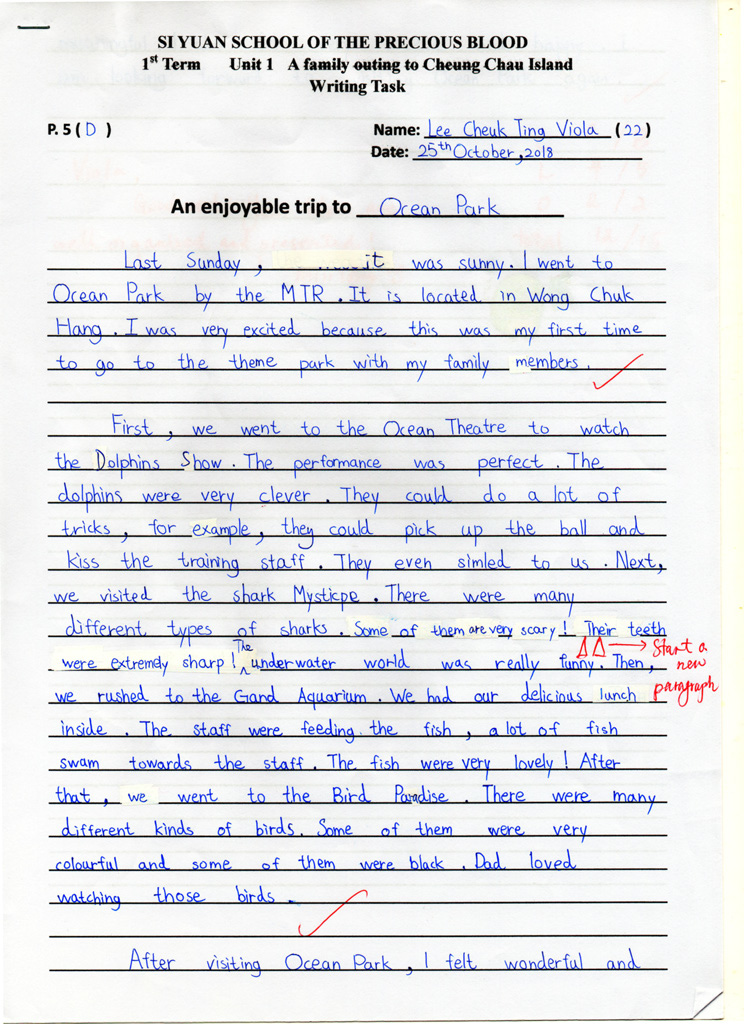 SI YUAN SCHOOL OF THE PRECIOUS BLOOD
1st Term Unit 1 A family outing to Cheung Chau Island
Writing Task
P. 5 ( D ) Name: Lee Cheuk Ting Viola ( 22 )
Date: 25th October, 2018
An enjoyable trip to Ocean Park
Last Sunday, it was sunny. I went to
Ocean Park by the MTR. It is located in Wong Chuk
Hang. I was very excited because this was my first time
to go to the theme park with my family members.
First, we went to the Ocean Theatre to watch
the Dolphins Show. The performance was perfect. The
dolphins were very clever. They could do a lot of
tricks, for example, they could pick up the ball and
kiss the training staff. They even simled to us. Next,
we visited the shark Mysticpe. There were many
different types of sharks. Some of them are very scary! Their teeth
were extremely sharp! The underwater world was really funny. Then,
Start a new paragraph
we rushed to the Gand Aquarium. We had our delicious lunch
inside. The staff were feeding the fish, a lot of fish
swam towards the staff. The fish were very lovely! After
that, we went to the Bird Paradise. There were many
different kinds of birds. Some of them were very
colourful and some of them were black. Dad loved
watching those birds.
After visiting Ocean Park, I felt wonderful and